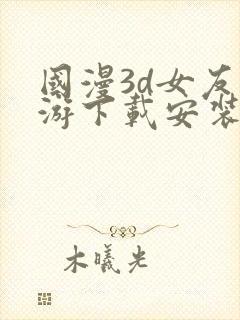 國漫3d女友
游下載安裝
木曦光